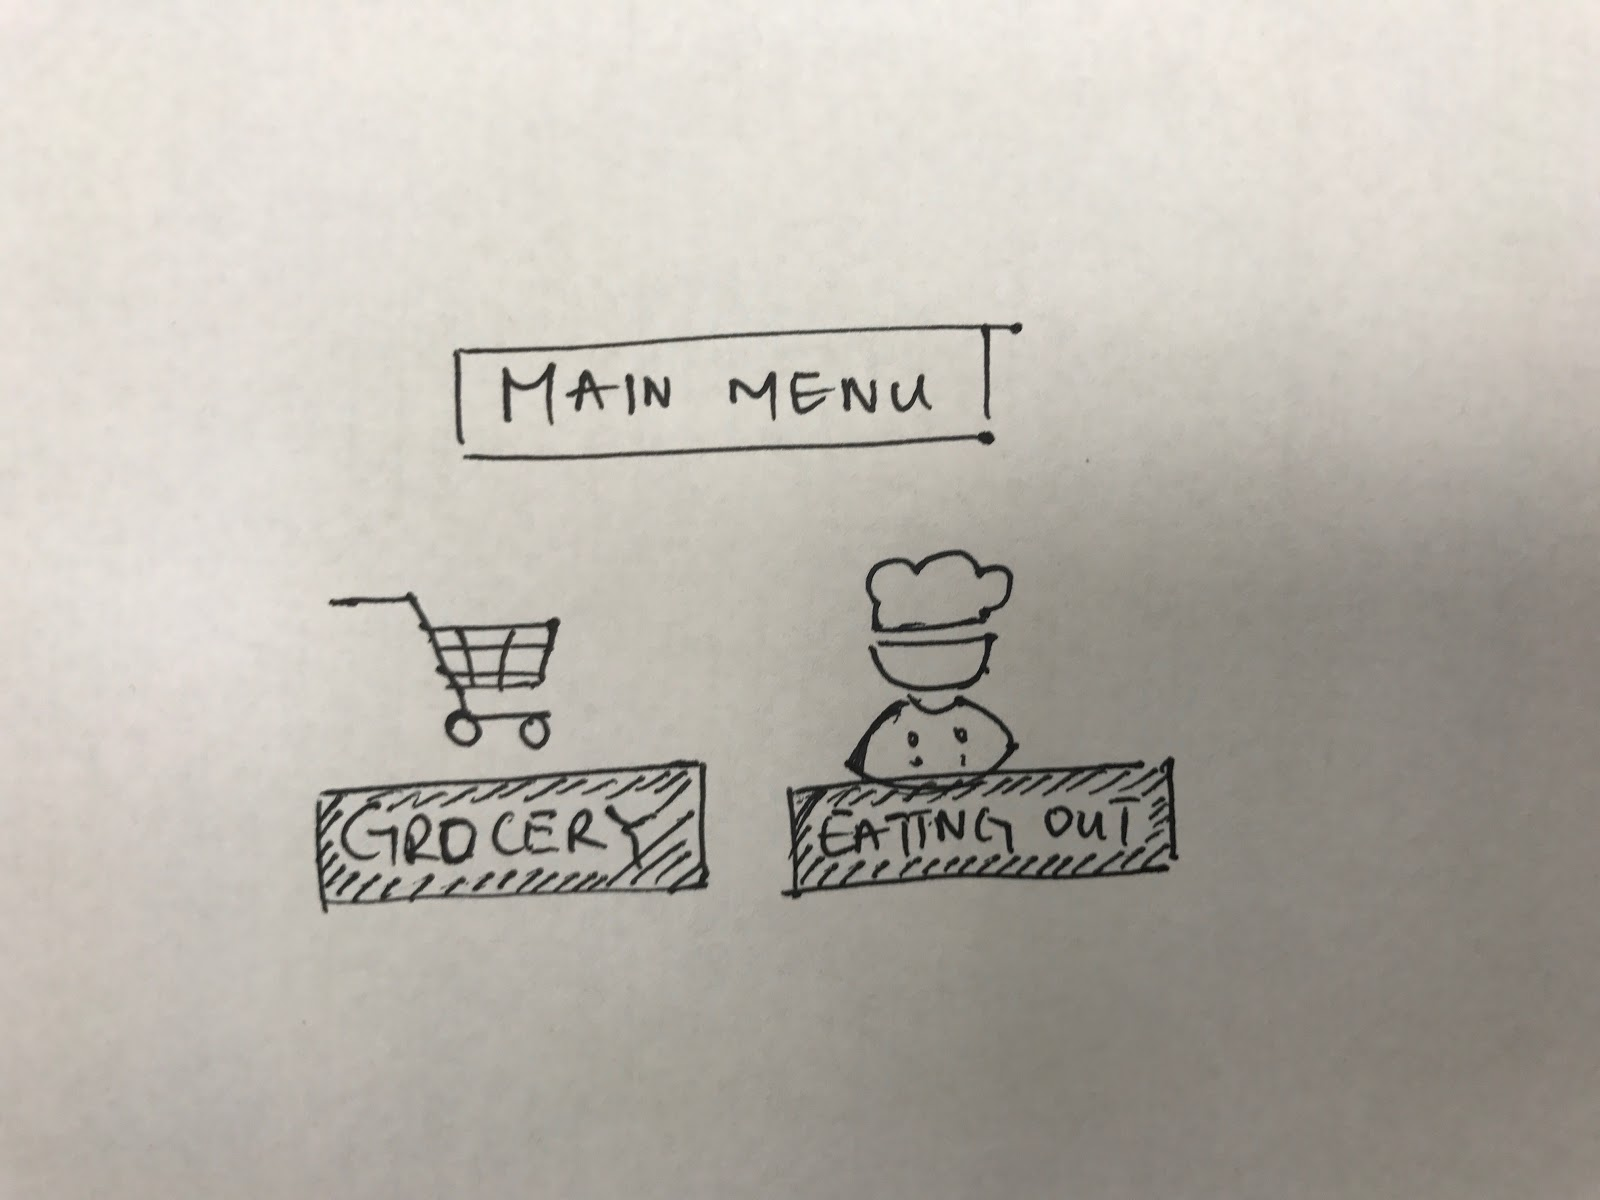 MAIN MENU
GROCERY
EATING OUT